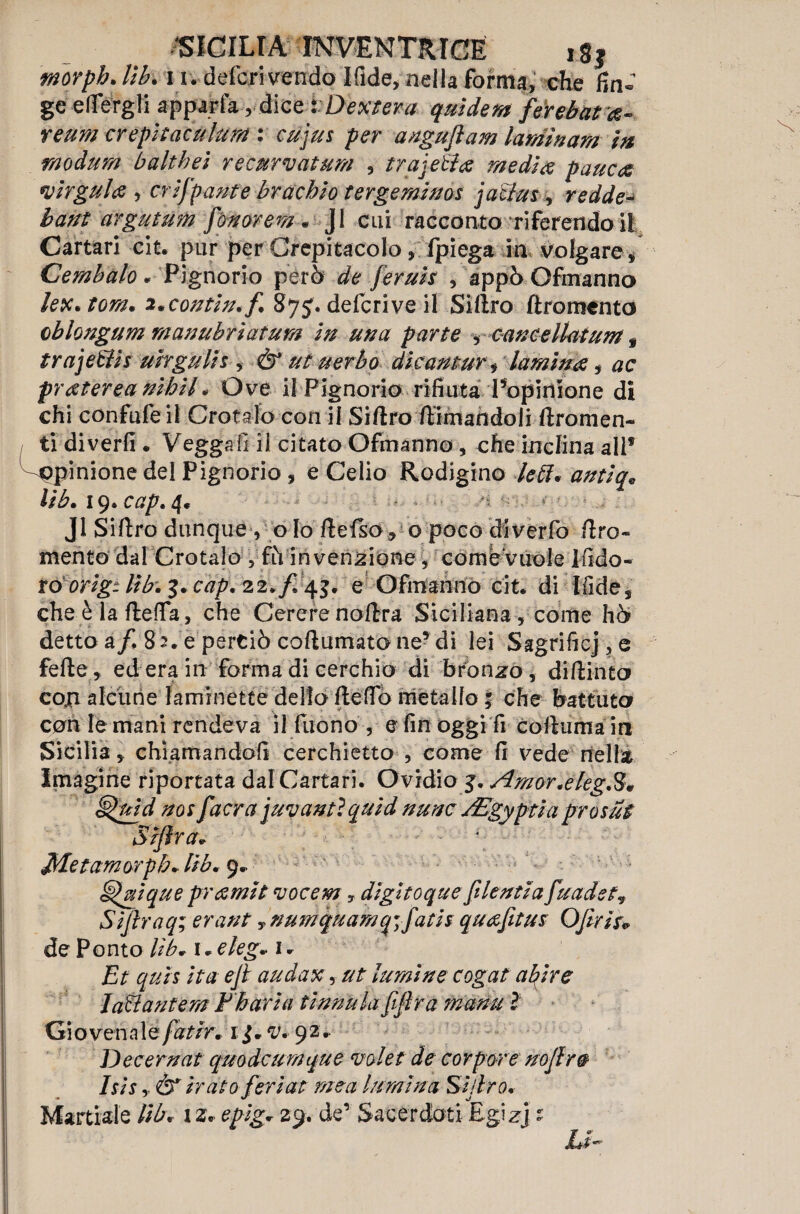 SICILIA INVENTRICE 183
morph. lib. 11. descrivendo Iside, nella forma, che fin-
ge essergli apparsa, dice : Dextera quidem ferebat æ-
reum crepitaculum : cujus per angustam laminam in
modum balthei recurvatum , trajectæ mediæ paucæ
virgulæ , crispante brachio tergeminos jactus , redde-
bant argutum sonorem . Jl cui racconto riferendo il
Cartari cit. pur per Crepitacolo , spiega in volgare,
Cembalo . Pignorio però de servis , appò Osmanno
lex. tom. 2. contin. f. 875. descrive il Sistro stromento
oblongum manubriatum in una parte , cancellatum ,
trajectis uirgulis , & ut uerbo dicantur , laminæ , ac
præterea nihil . Ove il Pignorio rifiuta l'opinione di
chi confuse il Crotalo con il Sistro stimandoli stromen-
ti diversi . Veggasi il citato Osmanno , che inclina all'
opinione del Pignorio , e Celio Rodigino lect. antiq.
lib. 19. cap. 4.
Jl Sistro dunque , o lo stesso , o poco diverso stro-
mento dal Crotalo , fù invenzione , come vuole Isido-
ro orig. lib. 3. cap. 22. f. 43. e Osmanno cit. di Iside,
che è la stessa, che Cerere nostra Siciliana , come hò
detto a f. 82. e perciò costumato ne' di lei Sagrificj , e
feste , ed era in forma di cerchio di bronzo , distinto
con alcune laminette dello stesso metallo ; che battuto
con le mani rendeva il suono , e fin oggi si costuma in
Sicilia , chiamandosi cerchietto , come si vede nella
Imagine riportata dal Cartari. Ovidio 3. Amor. eleg. 8.
Quid nos sacra juvant? quid nunc Ægyptia prosūt
Sistra.
Metamorph. lib. 9.
Quique præmit vocem , digitoque silentia suadet,
Sistraq; erant , numquamq; satis quæsitus Osiris.
de Ponto lib. 1. eleg. 1.
Et quis ita est audax , ut lumine cogat abire
Iactantem Pharia tinnula sistra manu ?
Giovenale satir. 13. v. 92.
Decernat quodcumque volet de corpore nostro
Isis , & irato feriat mea lumina Sistro.
Martiale lib. 12. epig. 29. de' Sacerdoti Egizj :
Li-